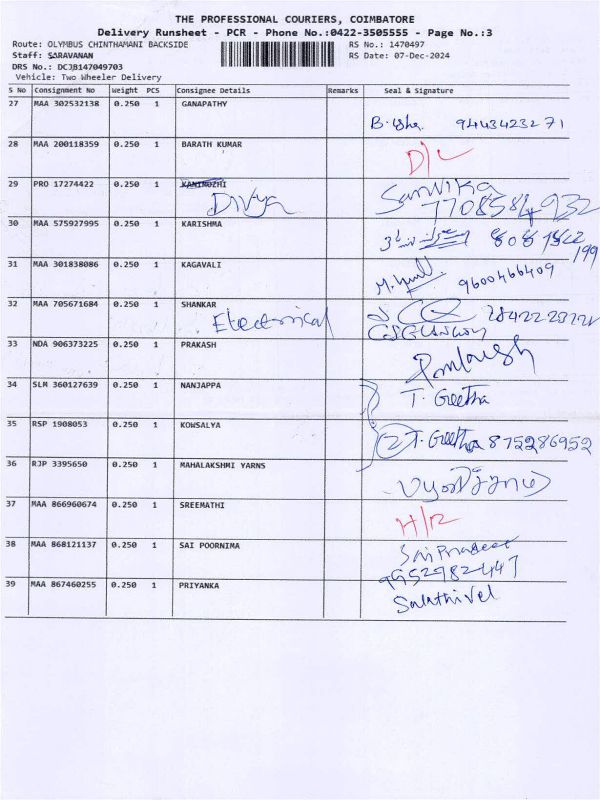 THE PROFESSIONAL COURIERS, COIMBATORE
Delivery Runsheet - PCR - Phone No.:0422-3505555 - Page No.:3
Route: OLYMBUS CHINTHAMANI BACKSIDE RS No.: 1470497
Staff: SARAVANAN RS Date: 07-Dec-2024
DRS No.: DCJB147049703
Vehicle: Two Wheeler Delivery
S No Consignment No Weight PCS Consignee Details Remarks Seal & Signature
27 MAA 302532138 0.250 1 GANAPATHY
94434232 71
28 MAA 200118359 0.250 1 BARATH KUMAR
D/L
29 PRO 17274422 0.250 1 KANIMOZHI
Divya 7708584932
30 MAA 575927995 0.250 1 KARISHMA
31 MAA 301838086 0.250 1 KAGAVALI
9600466409
32 MAA 705671684 0.250 1 SHANKAR
Electrical
33 NDA 906373225 0.250 1 PRAKASH
34 SLM 360127639 0.250 1 NANJAPPA
T. Geetha
35 RSP 1908053 0.250 1 KOWSALYA
2 T. Geetha 875286952
36 RJP 3395650 0.250 1 MAHALAKSHMI YARNS
37 MAA 866960674 0.250 1 SREEMATHI
H/R
38 MAA 868121137 0.250 1 SAI POORNIMA
Sai Pradeep
9952982447
39 MAA 867460255 0.250 1 PRIYANKA
Sakthivel